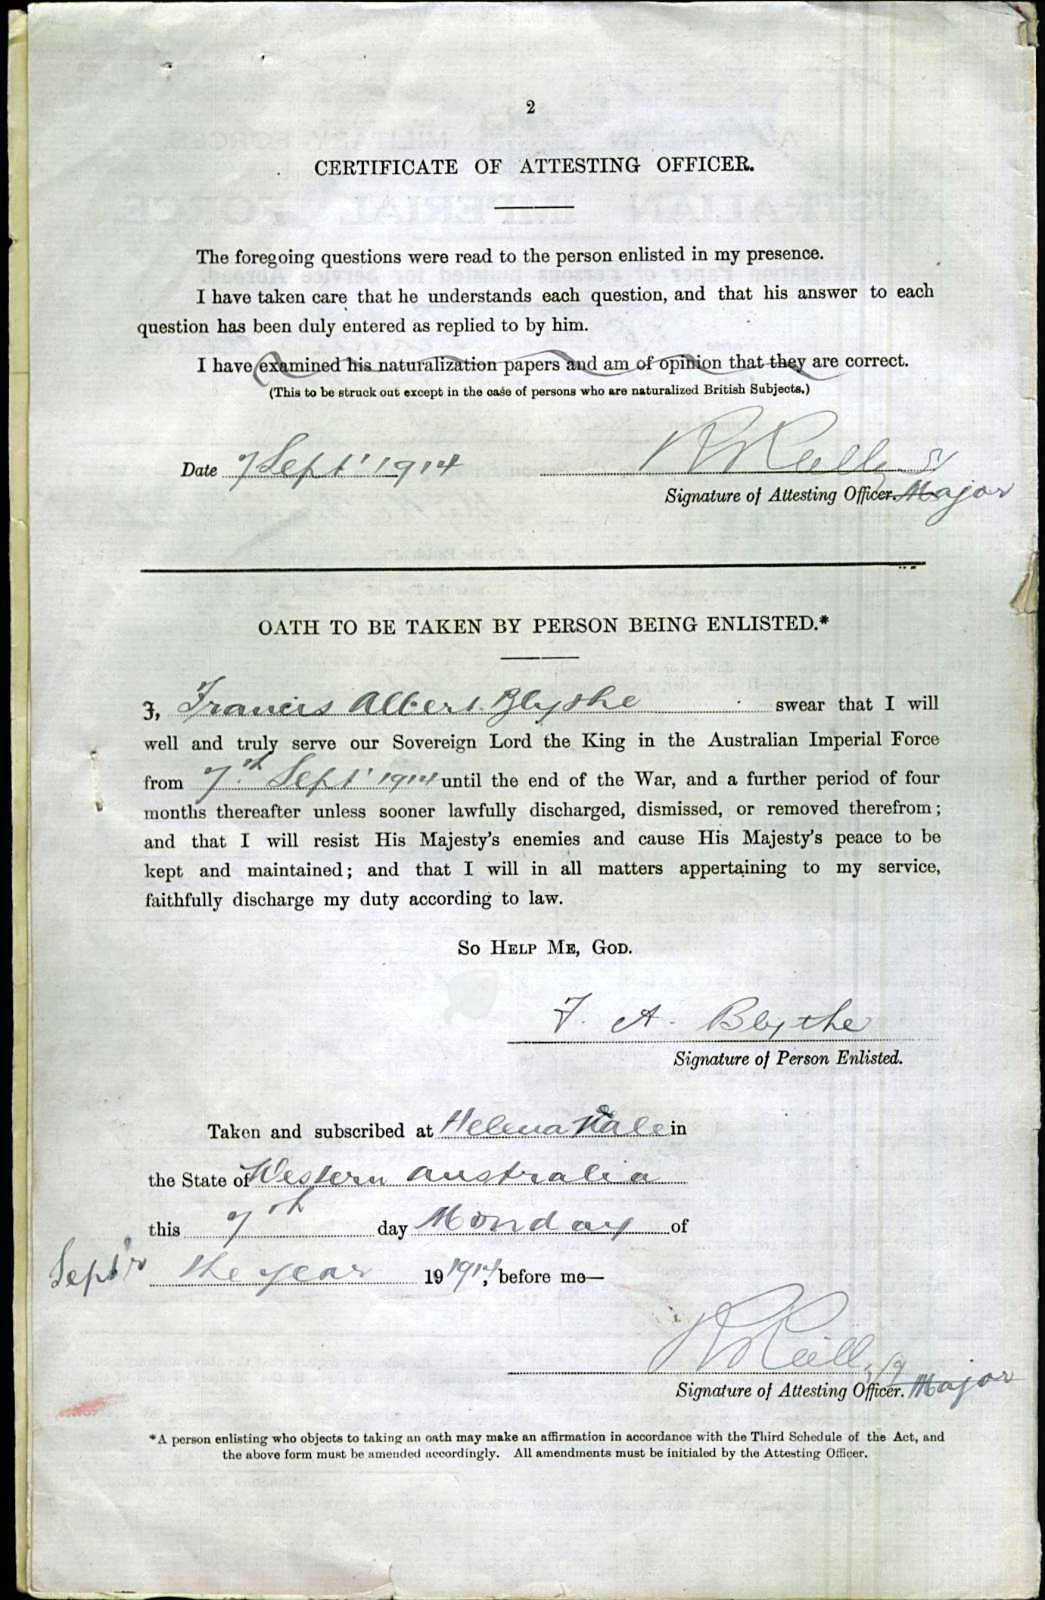 2
CERTIFICATE OF ATTESTING OFFICER.
The foregoing questions were read to the person enlisted in my presence.
I have taken care that he understands each question, and that his answer to each
question has been duly entered as replied to by him.
I have examined his naturalization papers and am of opinion that they are correct.
(This to be struck out except in the case of persons who are naturalized British Subjects.)
Date 7 Sept' 1914
Signature of Attesting Officer. Major
OATH TO BE TAKEN BY PERSON BEING ENLISTED.*
I, Francis Albert Blythe swear that I will
well and truly serve our Sovereign Lord the King in the Australian Imperial Force
from 7th Sept' 1914 until the end of the War, and a further period of four
months thereafter unless sooner lawfully discharged, dismissed, or removed therefrom;
and that I will resist His Majesty's enemies and cause His Majesty's peace to be
kept and maintained; and that I will in all matters appertaining to my service,
faithfully discharge my duty according to law.
So Help Me, God.
F. A. Blythe
Signature of Person Enlisted.
Taken and subscribed at Helena Vale in
the State of Western Australia
this 7th day Monday of
Sept'r the year 19 1914, before me—
Signature of Attesting Officer. Major
*A person enlisting who objects to taking an oath may make an affirmation in accordance with the Third Schedule of the Act, and
the above form must be amended accordingly. All amendments must be initialed by the Attesting Officer.